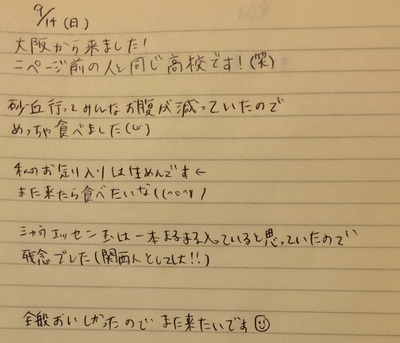 9/14(日)
大阪から来ました!
二ページ前の人と同じ高校です!(笑)
砂丘行ってみんなお腹が減っていたので
めっちゃ食べました(
私のお気に入りは生めんです←
また来たら食べたいな((^o^)ノ
シャウエッセン玉は一本まるまる入っていると思っていたので
残念でした(関西人としては!!)
全般おいしかったのでまた来たいです☺